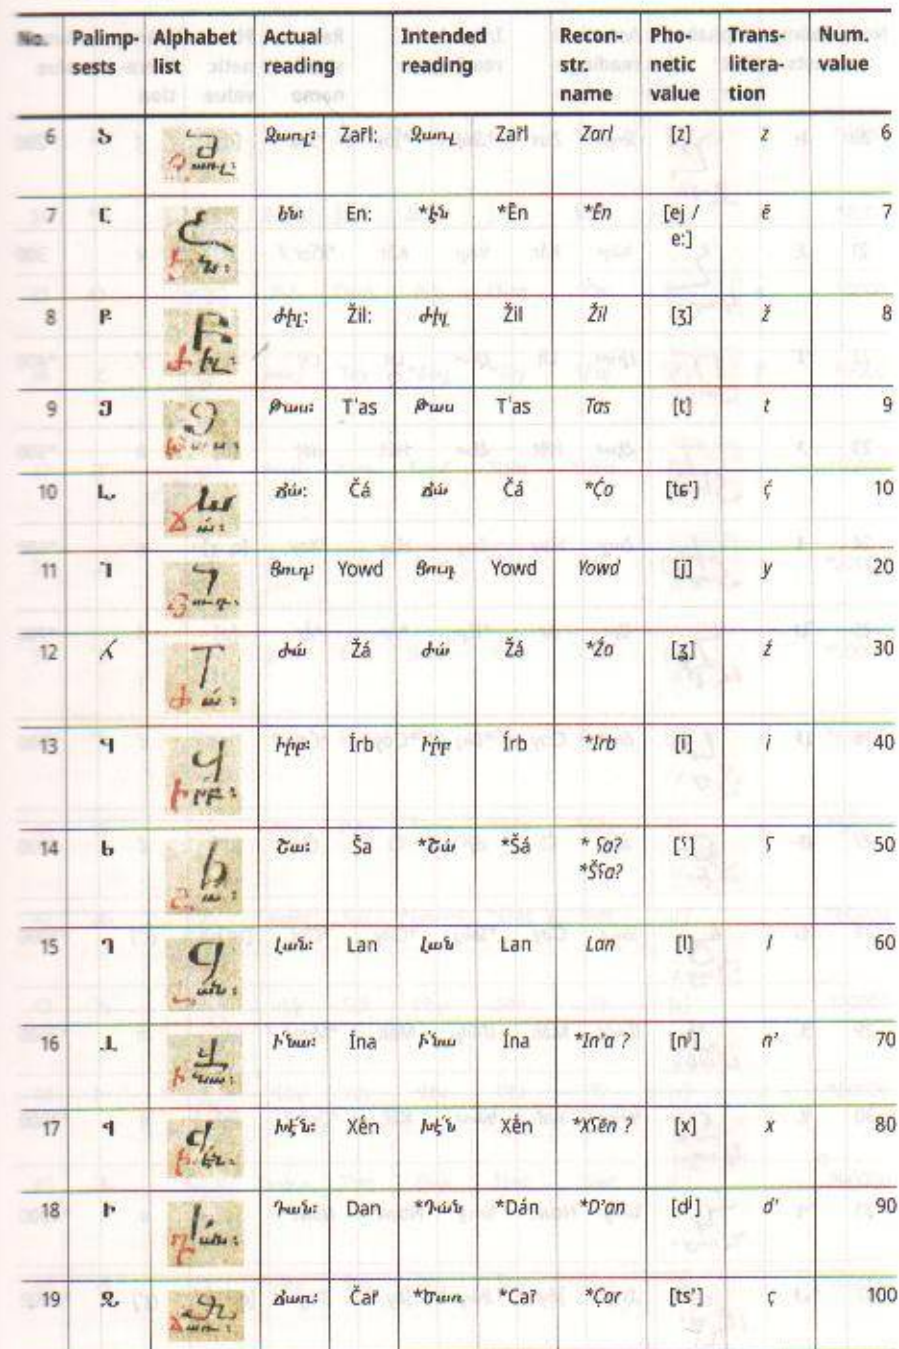 No. Palimp-sests Alphabet list Actual reading Intended reading Recon-str. name Pho-netic value Trans-litera-tion Num. value
6 Զառլ: Zaṙl: Զառլ Zaṙl Zarl [z] z 6
7 Են: En: *Էն *Ēn *Ēn [ej / e:] ē 7
8 Ժիլ: Žil: Ժիլ Žil Žil [ʒ] ž 8
9 Թաս: T'as Թաս T'as Tas [t] t 9
10 Ճա՛: Čá Ճա՛ Čá *Ćo [tɕ'] ć 10
11 Յուդ: Yowd Յուդ Yowd Yowd [j] y 20
12 Ժա՛ Žá Ժա՛ Žá *Źo [ʓ] ź 30
13 Ի՛րբ: Írb Ի՛րբ Írb *Irb [i] i 40
14 Շա: Ša *Շա՛ *Šá *ʕa? *Šʕa? [ˤ] ʕ 50
15 Լան: Lan Լան Lan Lan [l] l 60
16 Ի՛նա: Ína Ի՛նա Ína *In'a ? [nʲ] n' 70
17 Խէ՛ն: Xén Խէ՛ն Xḗn *Xʕēn ? [x] x 80
18 Դան: Dan *Դա՛ն *Dán *D'an [dʲ] d' 90
19 Ճառ: Čaṙ *Ծառ *Caṙ *Çar [ts'] ç 100